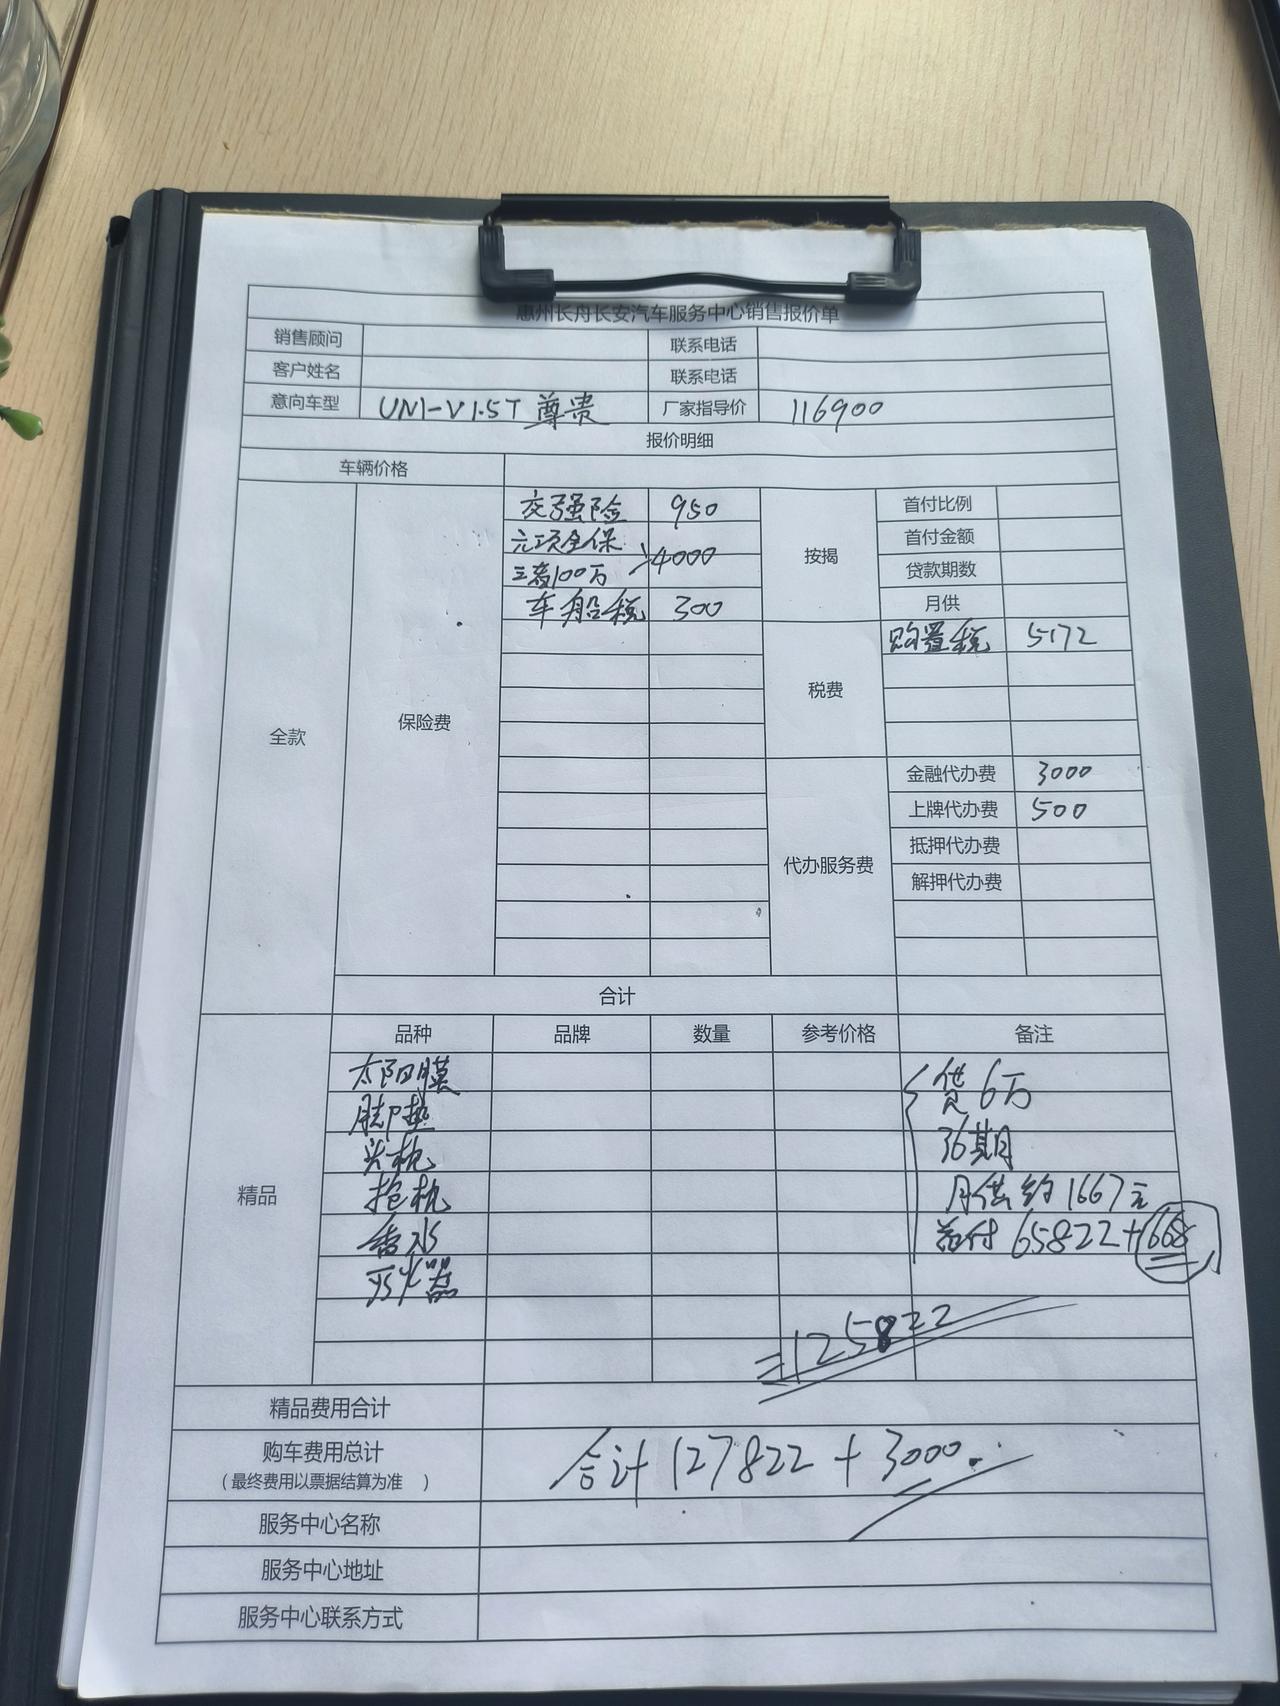 惠州长舟长安汽车服务中心销售报价单
销售顾问 联系电话
客户姓名 联系电话
意向车型 UNI-V1.5T 尊贵 厂家指导价 116900
报价明细
车辆价格
全款 保险费
交强险 950
元项全保
三者100万 4000
车船税 300
按揭
首付比例
首付金额
贷款期数
月供
税费
购置税 5172
代办服务费
金融代办费 3000
上牌代办费 500
抵押代办费
解押代办费
合计
精品
品种 品牌 数量 参考价格 备注
太阳膜
脚垫
头枕
抱枕
香水
灭火器
贷6万
36期
月供约1667元
首付 65822+1668
=125822
精品费用合计
购车费用总计
(最终费用以票据结算为准 )
合计 127822 + 3000.
服务中心名称
服务中心地址
服务中心联系方式